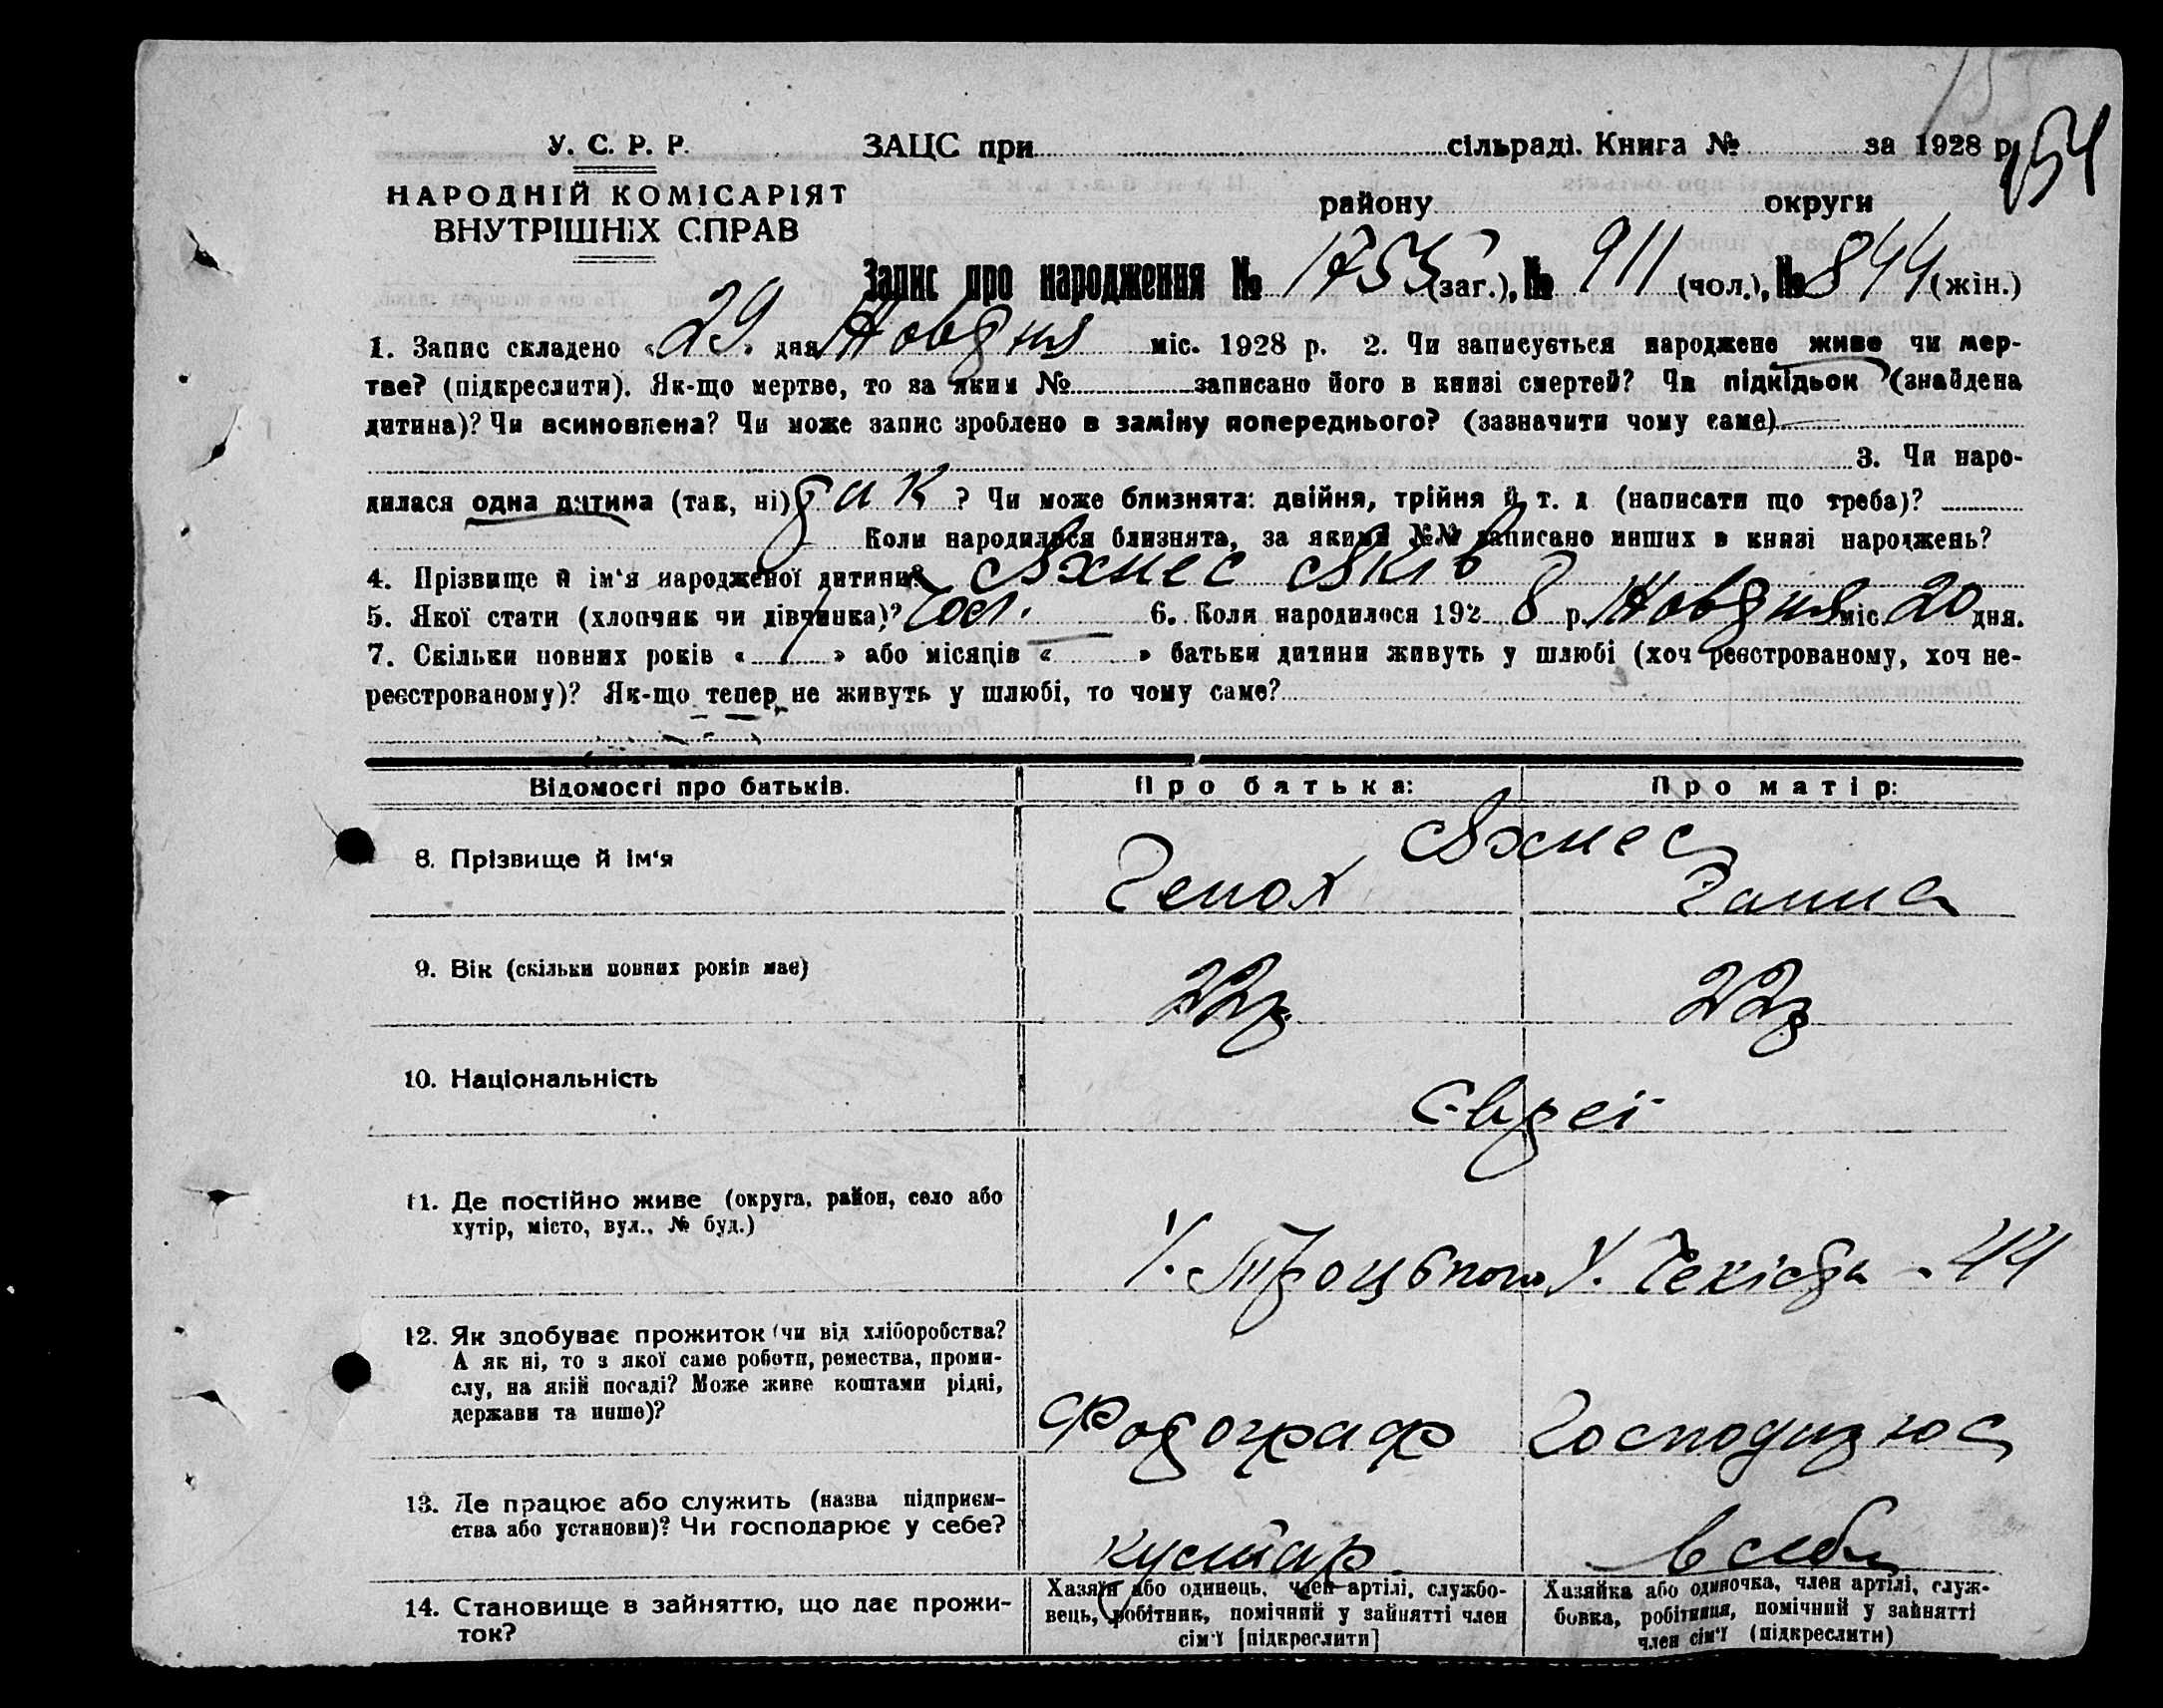 154
У. С. Р. Р. ЗАЦС при сільраді. Книга № за 1928 р.
НАРОДНІЙ КОМІСАРІЯТ
ВНУТРІШНІХ СПРАВ
району округи
Запис про народження № 1755 (заг.), № 911 (чол.), № 844 (жін.)
1. Запис складено «29» дня Жовтня міс. 1928 р. 2. Чи записується народжене живе чи мер-
тве? (підкреслити). Як-що мертве, то за яким № записано його в книзі смертей? Чи підкідьок (знайдена
дитина)? Чи всиновлена? Чи може запис зроблено в заміну попереднього? (зазначити чому саме)
3. Чи наро-
дилася одна дитина (так, ні) так ? Чи може близнята: двійня, трійня й т. д (написати що треба)?
Коли народилися близнята, за якими №№ записано инших в книзі народжень?
4. Прізвище й ім‘я народженої дитини? Яхнес Яків
5. Якої стати (хлопчик чи дівчинка)? чол. 6. Коли народилося 1928 р. Жовтня міс. 20 дня.
7. Скільки повних років «1» або місяців « — » батьки дитини живуть у шлюбі (хоч реєстрованому, хоч не-
реєстрованому)? Як-що тепер не живуть у шлюбі, то чому саме?
Відомості про батьків. Про батька: Про матір:
Яхнес
8. Прізвище й ім‘я Генох Ганна
9. Вік (скільки повних років має) 22р. 22р
10. Національність Євреї
11. Де постійно живе (округа, район, село або
хутір, місто, вул., № буд.)
У. Троцького У. Чекіста - 44
12. Як здобуває прожиток (чи від хліборобства?
А як ні, то з якої саме роботи, ремества, проми-
слу, на якій посаді? Може живе коштами рідні,
держави та инше)?
Фотограф Господиня
13. Де працює або служить (назва підприєм-
ства або установи)? Чи господарює у себе?
кустар. в себе
14. Становище в зайняттю, що дає прожи-
ток?
Хазяїн або одинець, член артілі, службо-
вець, робітник, помічний у зайнятті член
сім‘ї [підкреслити]
Хазяйка або одиночка, член артілі, служ-
бовка, робітниця, помічний у зайнятті
член сім‘ї (підкреслити)